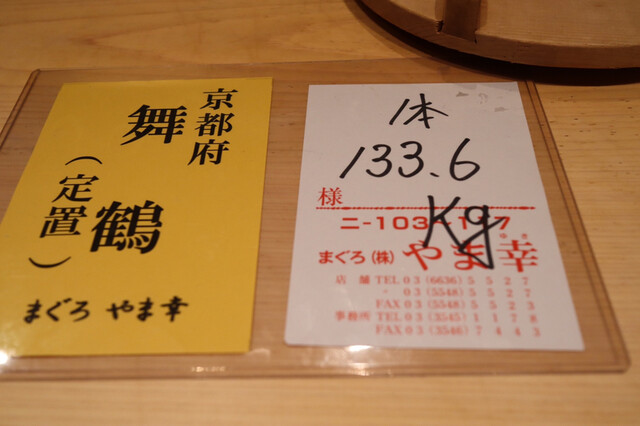 京都府
舞鶴
(定置)
まぐろ やま幸
1本
133.6
Kg
様
まぐろ(株) やま幸
店舗 TEL 03(6636)5527
〃 03(5548)5527
FAX 03(5548)5523
事務所 TEL 03(3545)1178
FAX 03(3546)7443